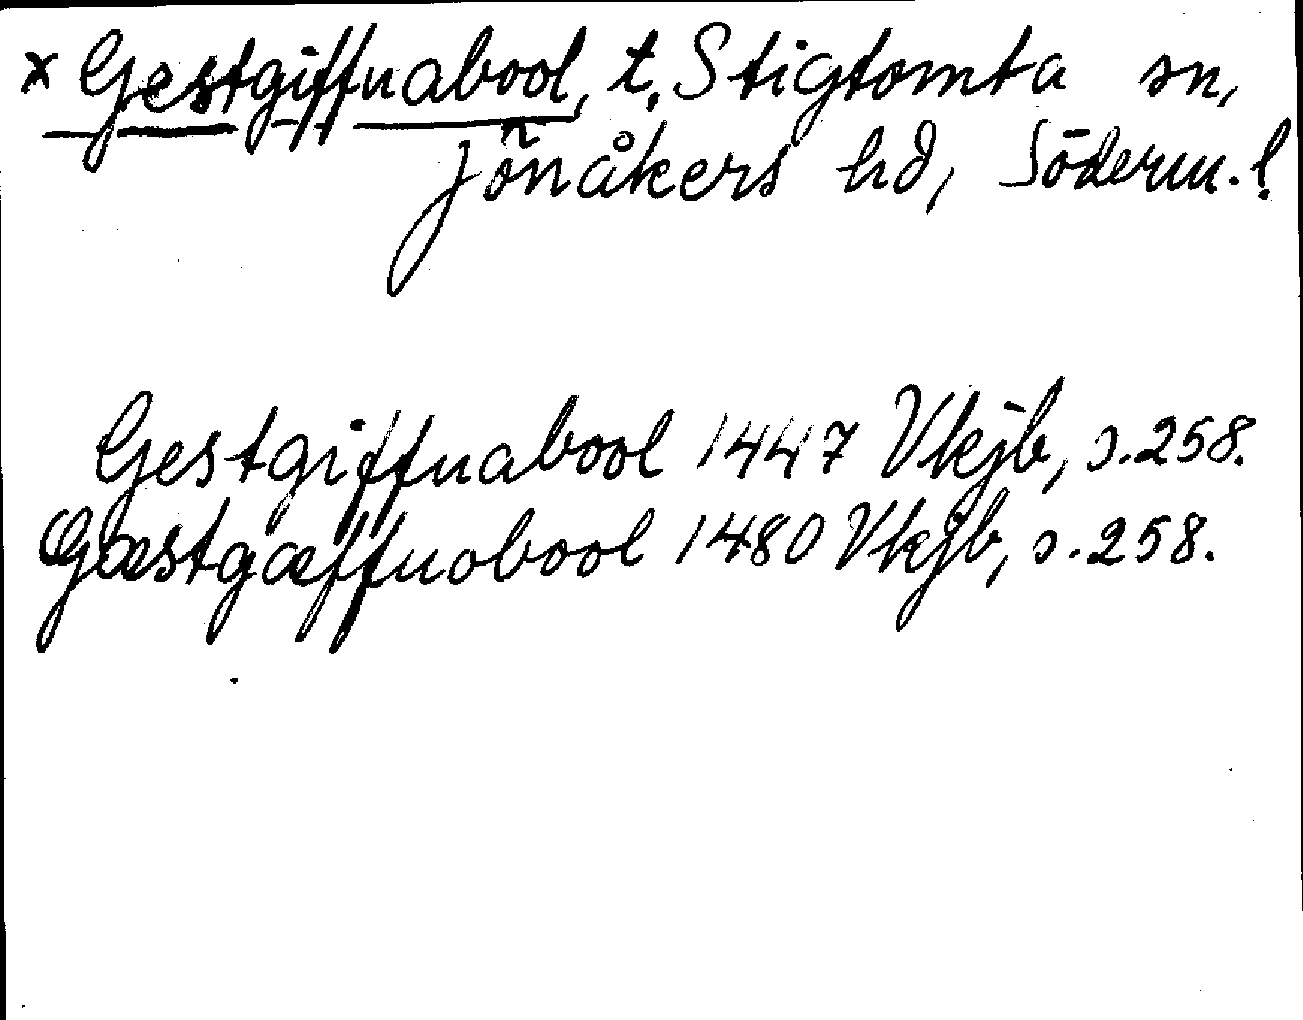 x Gestgiffnabool, t. Stigtomta sn,
Jönåkers hd, Söderm. l.
Gestgiffnabool 1447 Vkjb, s. 258.
Gæstgæffnobool 1480 Vkjb, s. 258.